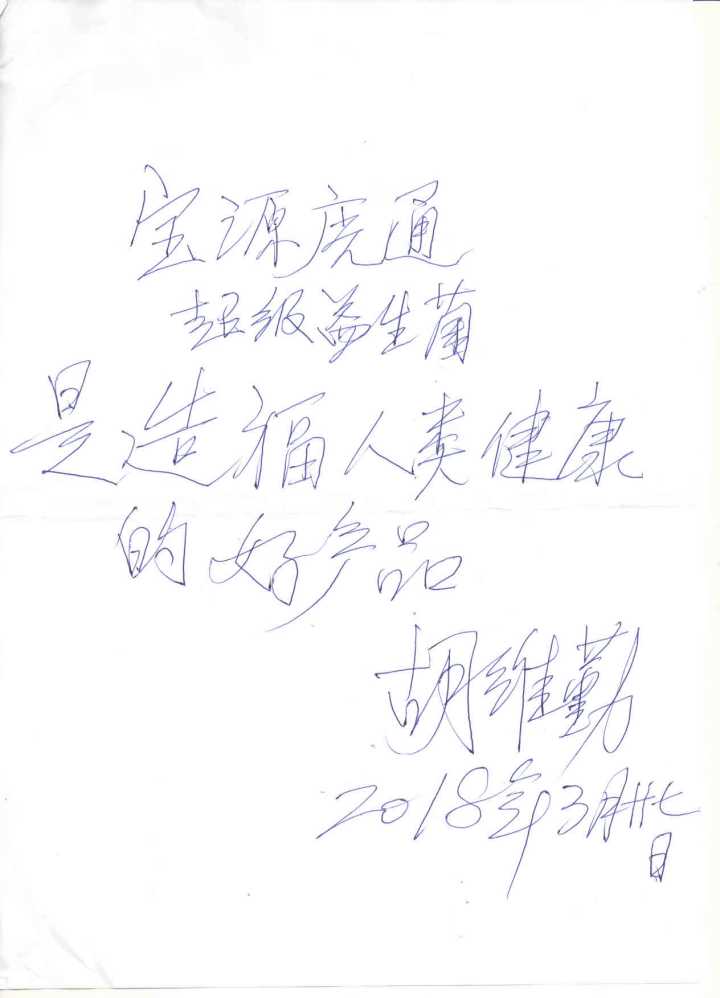 宝源通
超级益生菌
是造福人类健康
的好产品
胡维勤
2018年3月廿七
日